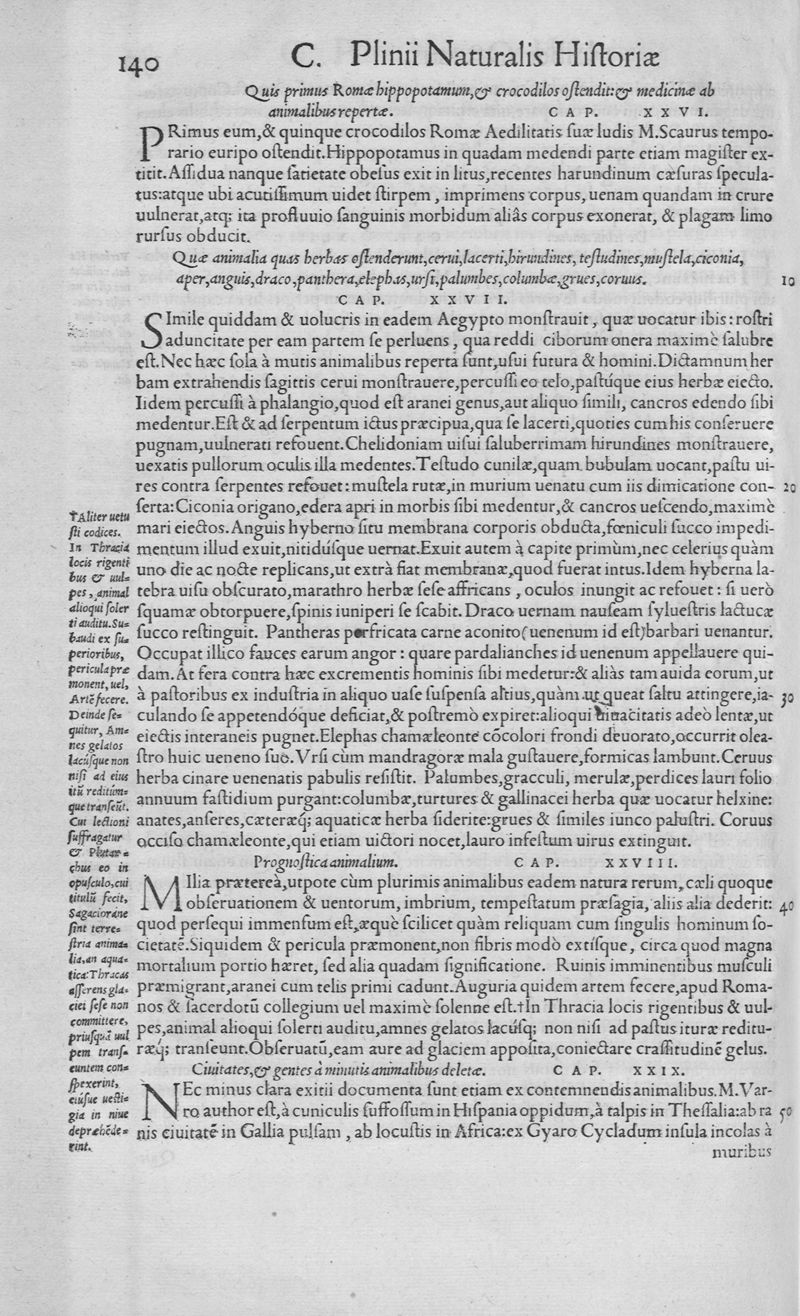 140
C. Plinii Naturalis Hiſtoriæ
Quis primus Romæ hippopotamum,& crocodilos oſtendit:& medicinæ ab
animalibus repertæ. CAP. XXVI.
PRimus eum,& quinque crocodilos Romæ Aedilitatis ſuæ ludis M.Scaurus tempo-
rario euripo oſtendit.Hippopotamus in quadam medendi parte etiam magiſter ex-
titit.Aſſidua nanque ſatietate obeſus exit in litus,recentes harundinum cæſuras ſpecula-
tus:atque ubi acutiſſimum uidet ſtirpem, imprimens corpus, uenam quandam in crure
uulnerat,atq; ita profluuio ſanguinis morbidum aliâs corpus exonerat, & plagam limo
rurſus obducit.
Quæ animalia quas herbas oſtenderunt,cerui,lacerti,hirundines, teſtudines,muſtela,ciconia,
aper,anguis,draco,panthera,elephas,urſi,palumbes,columbæ,grues,coruus.
10
CAP. XXVII.
SImile quiddam & uolucris in eadem Aegypto monſtrauit, quæ uocatur ibis: roſtri
aduncitate per eam partem ſe perluens, qua reddi ciborum onera maximè ſalubre
eſt.Nec hæc ſola à mutis animalibus reperta ſunt,uſui futura & homini.Dictamnum her
bam extrahendis ſagittis cerui monſtrauere,percuſſi eo telo,paſtúque eius herbæ eiecto.
Iidem percuſſi à phalangio,quod eſt aranei genus,aut aliquo ſimili, cancros edendo ſibi
medentur.Eſt & ad ſerpentum ictus præcipua,qua ſe lacerti,quoties cum his conſeruere
pugnam,uulnerati refouent.Chelidoniam uiſui ſaluberrimam hirundines monſtrauere,
uexatis pullorum oculis illa medentes.Teſtudo cunilæ,quam bubulam uocant,paſtu ui-
res contra ſerpentes refouet: muſtela rutæ,in murium uenatu cum iis dimicatione con-
20
ſerta:Ciconia origano,edera apri in morbis ſibi medentur,& cancros ueſcendo,maximè
mari eiectos.Anguis hyberno ſitu membrana corporis obducta,fœniculi ſucco impedi-
mentum illud exuit,nitidúſque uernat.Exuit autem à capite primùm,nec celerius quàm
uno die ac nocte replicans,ut extrà fiat membranæ,quod fuerat intus.Idem hyberna la-
tebra uiſu obſcurato,marathro herbæ ſeſe affricans, oculos inungit ac refouet: ſi uerò
ſquamæ obtorpuere,ſpinis iuniperi ſe ſcabit. Draco uernam nauſeam ſylueſtris lactucæ
ſucco reſtinguit. Pantheras perfricata carne aconito(uenenum id eſt)barbari uenantur.
Occupat illico fauces earum angor: quare pardalianches id uenenum appellauere qui-
dam.At fera contra hæc excrementis hominis ſibi medetur:& aliàs tam auida eorum,ut
à paſtoribus ex induſtria in aliquo uaſe ſuſpenſa altius,quàm ut queat ſaltu attingere,ia-
30
culando ſe appetendóque deficiat,& poſtremò expiret:alioqui uiuacitatis adeò lentæ,ut
eiectis interaneis pugnet.Elephas chamæleonte cōcolori frondi deuorato,occurrit olea-
ſtro huic ueneno ſuo.Vrſi cùm mandragoræ mala guſtauere,formicas lambunt.Ceruus
herba cinare uenenatis pabulis reſiſtit. Palumbes,gracculi, merulæ,perdices lauri folio
annuum faſtidium purgant:columbæ,turtures & gallinacei herba quæ uocatur helxine:
anates,anſeres,cæteræq́; aquaticæ herba ſiderite:grues & ſimiles iunco paluſtri. Coruus
occiſo chamæleonte,qui etiam uictori nocet,lauro infeſtum uirus extinguit.
Prognoſtica animalium. CAP. XXVIII.
MIlia prætereà,utpote cùm plurimis animalibus eadem natura rerum, cæli quoque
obſeruationem & uentorum, imbrium, tempeſtatum præſagia, aliis alia dederit:
40
quod perſequi immenſum eſt,æquè ſcilicet quàm reliquam cum ſingulis hominum ſo-
cietatē.Siquidem & pericula præmonent,non fibris modò extíſque, circa quod magna
mortalium portio hæret, ſed alia quadam ſignificatione. Ruinis imminentibus muſculi
præmigrant,aranei cum telis primi cadunt.Auguria quidem artem fecere,apud Roma-
nos & ſacerdotū collegium uel maximè ſolenne eſt.†In Thracia locis rigentibus & uul-
pes,animal alioqui ſolerti auditu,amnes gelatos lacúſq; non niſi ad paſtus ituræ reditu-
ræq́; tranſeunt.Obſeruatū,eam aure ad glaciem appoſita,coniectare craſſitudinē gelus.
Ciuitates,& gentes à minutis animalibus deletæ. CAP. XXIX.
NEc minus clara exitii documenta ſunt etiam ex contemnendis animalibus.M.Var-
ro author eſt,à cuniculis ſuffoſſum in Hiſpania oppidum,à talpis in Theſſalia:ab ra
50
nis ciuitatē in Gallia pulſam, ab locuſtis in Africa:ex Gyaro Cycladum inſula incolas à
muribus
†Aliter uetu
ſti codices.
In Thracia
locis rigenti
bus & uul=
pes, animal
alioqui ſoler
ti auditu.Su=
baudi ex ſu=
perioribus,
pericula præ
monent, uel,
Artē fecere.
Deinde ſe=
quitur, Am=
nes gelatos
lacúſque non
niſi ad eius
itū reditúm=
que tranſeūt.
Cui lectioni
ſuffragatur
& Plutar=
chus eo in
opuſculo,cui
titulū fecit,
Sagacioráne
ſint terre=
ſtria anima=
lia,an aqua=
tica:Thracas
aſſerens gla=
ciei ſeſe non
committere,
priuſquā uul
pem tranſ=
euntem con=
ſpexerint,
eiúſue ueſti=
gia in niue
deprehēde=
rint.